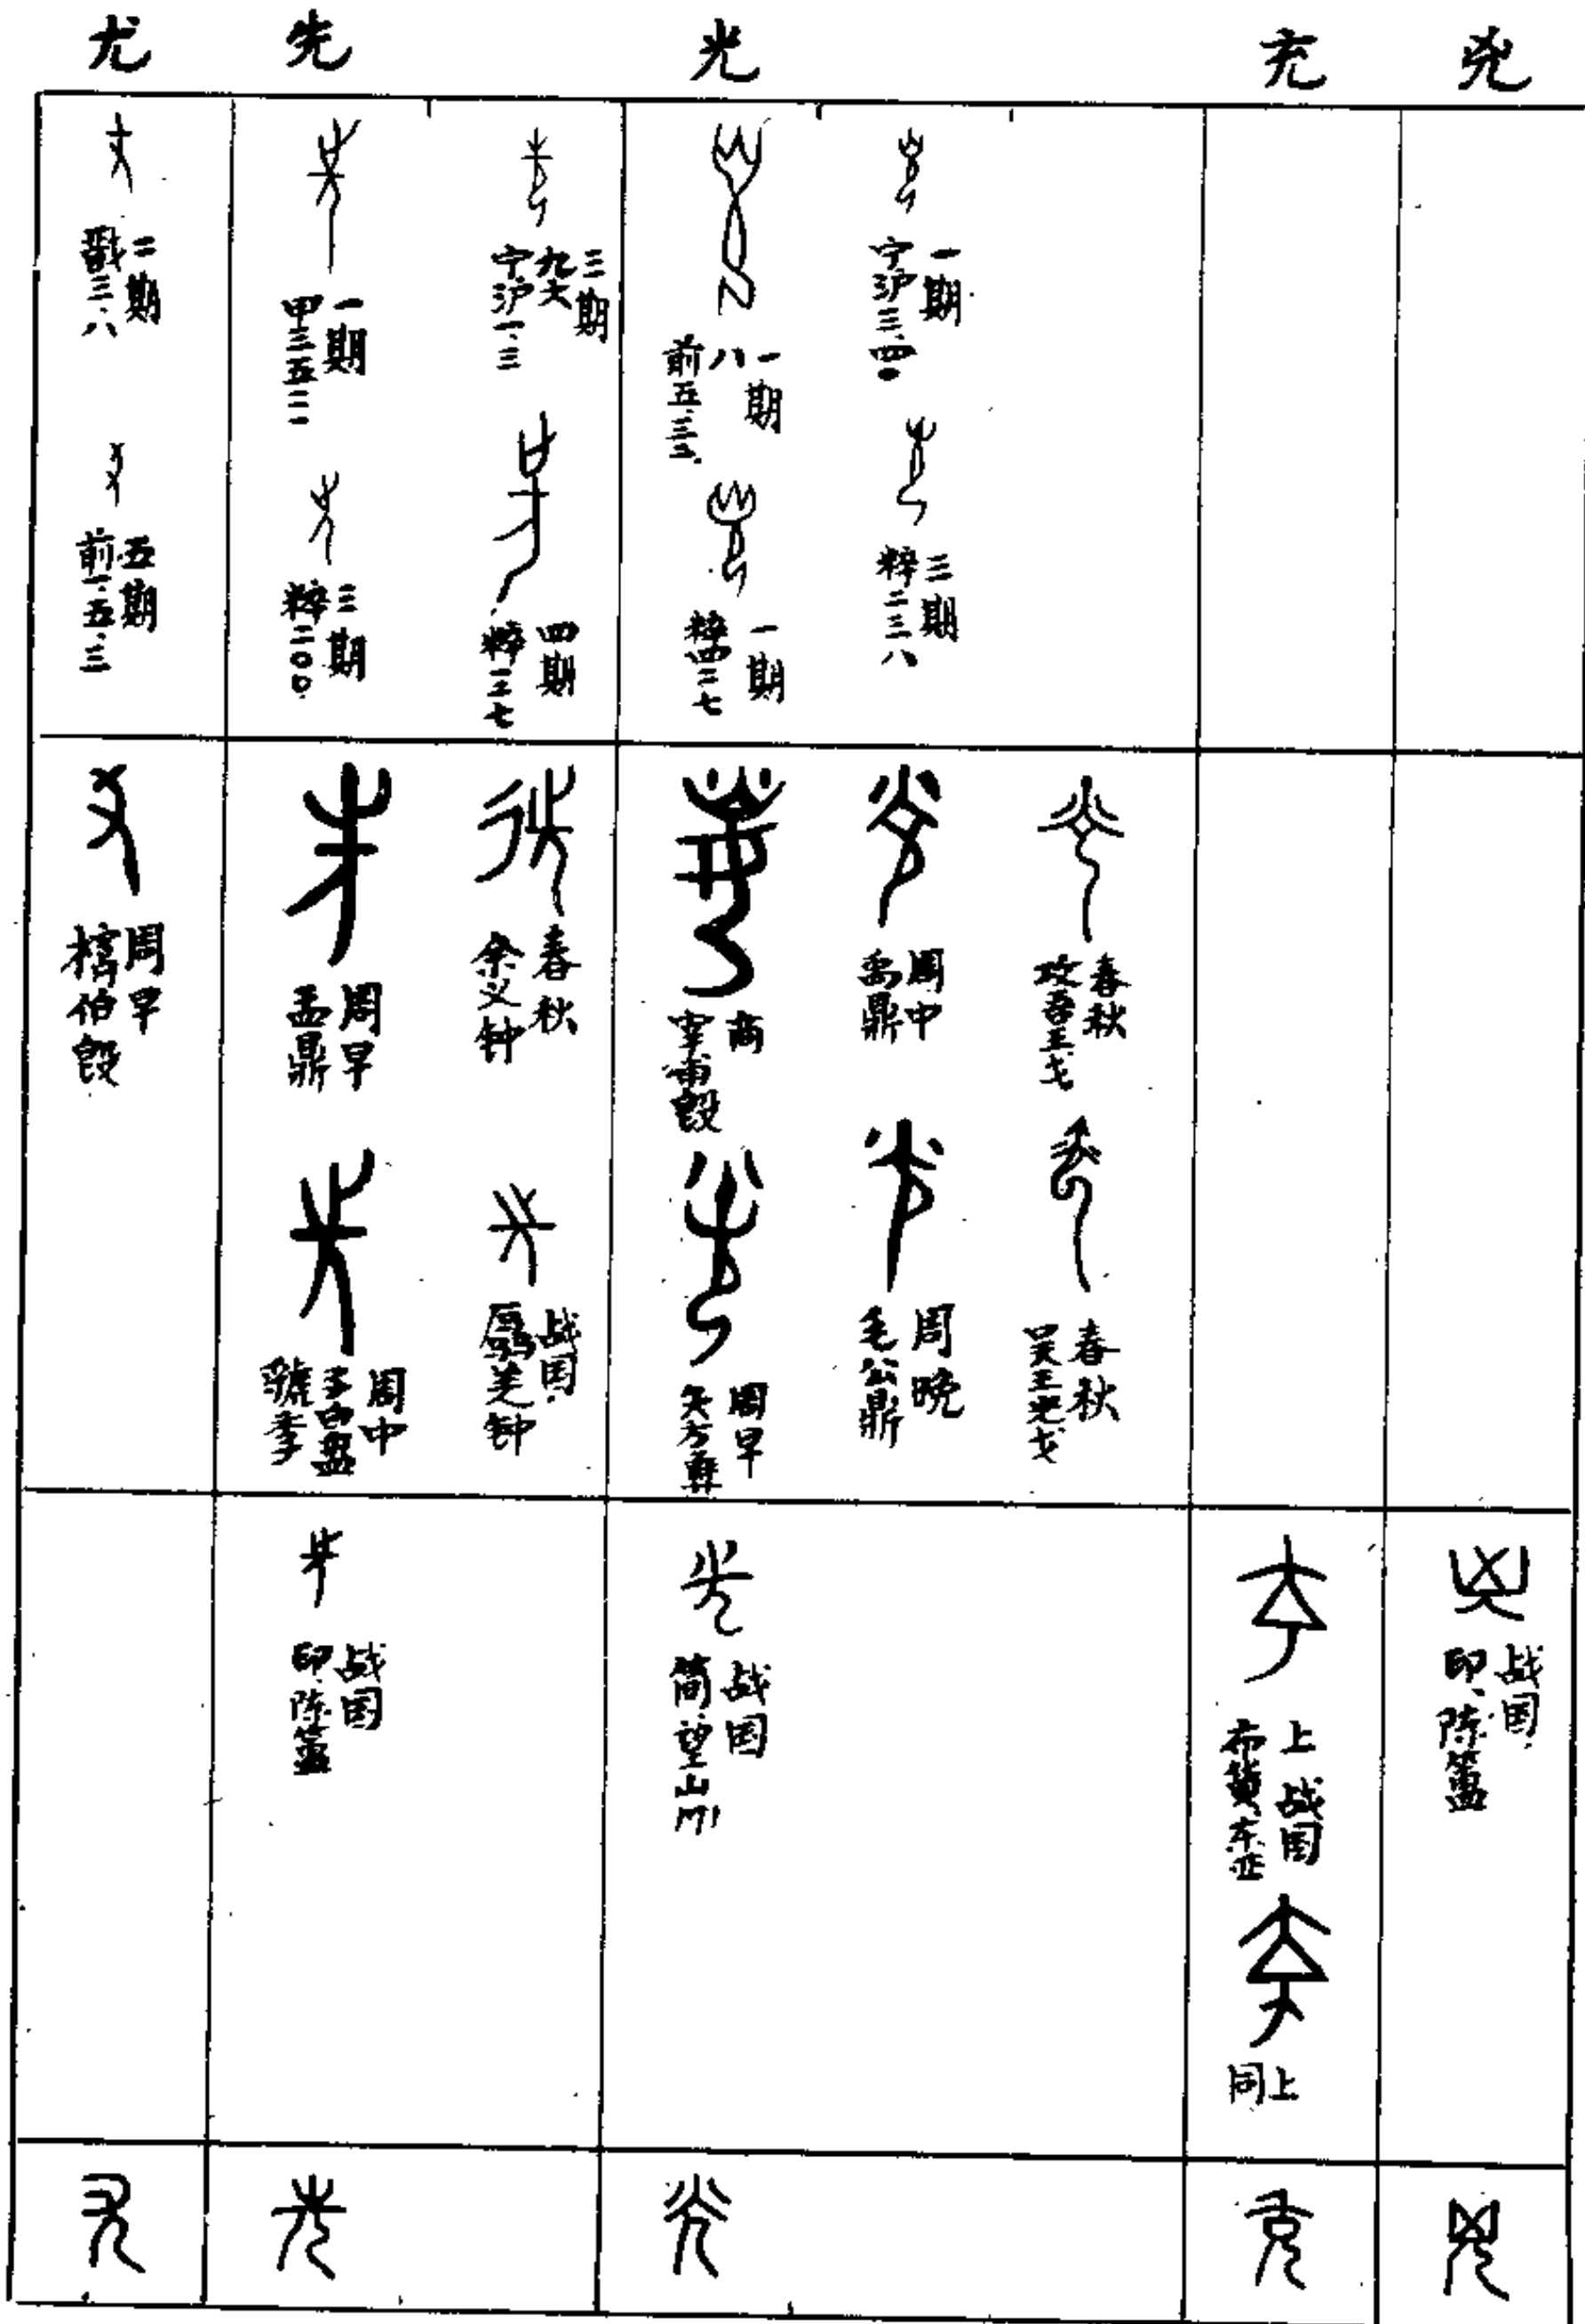 尤 先 光 充 兇
二期
戬三·八
五期
前一·五·三
一期
甲三五二一
三期
粹二〇〇
三期
九六
宁沪一·三
四期
粹二三七
一期
八
前五·三三
一期
粹四二七
一期
宁沪三·四〇
三期
粹二三八
周早
楷伯𣪘
周早
盂鼎
周中
子白盘
虢季
春秋
余义钟
战国
𠫑羌钟
商
宰甫𣪘
周早
矢方彝
周中
禹鼎
周晚
毛公鼎
春秋
攻吾王戈
春秋
吴王光戈
战国
印·陈簠
战国
简·望
上战国
同上
战国
印·陈簠